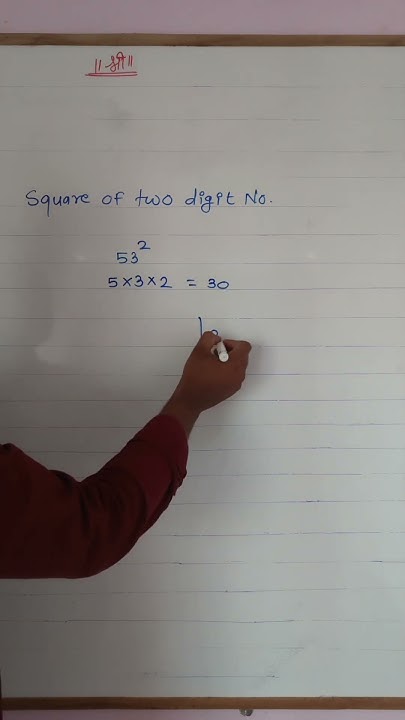 ॥ श्री ॥
Square of two digit No.
53²
5×3×2 = 30